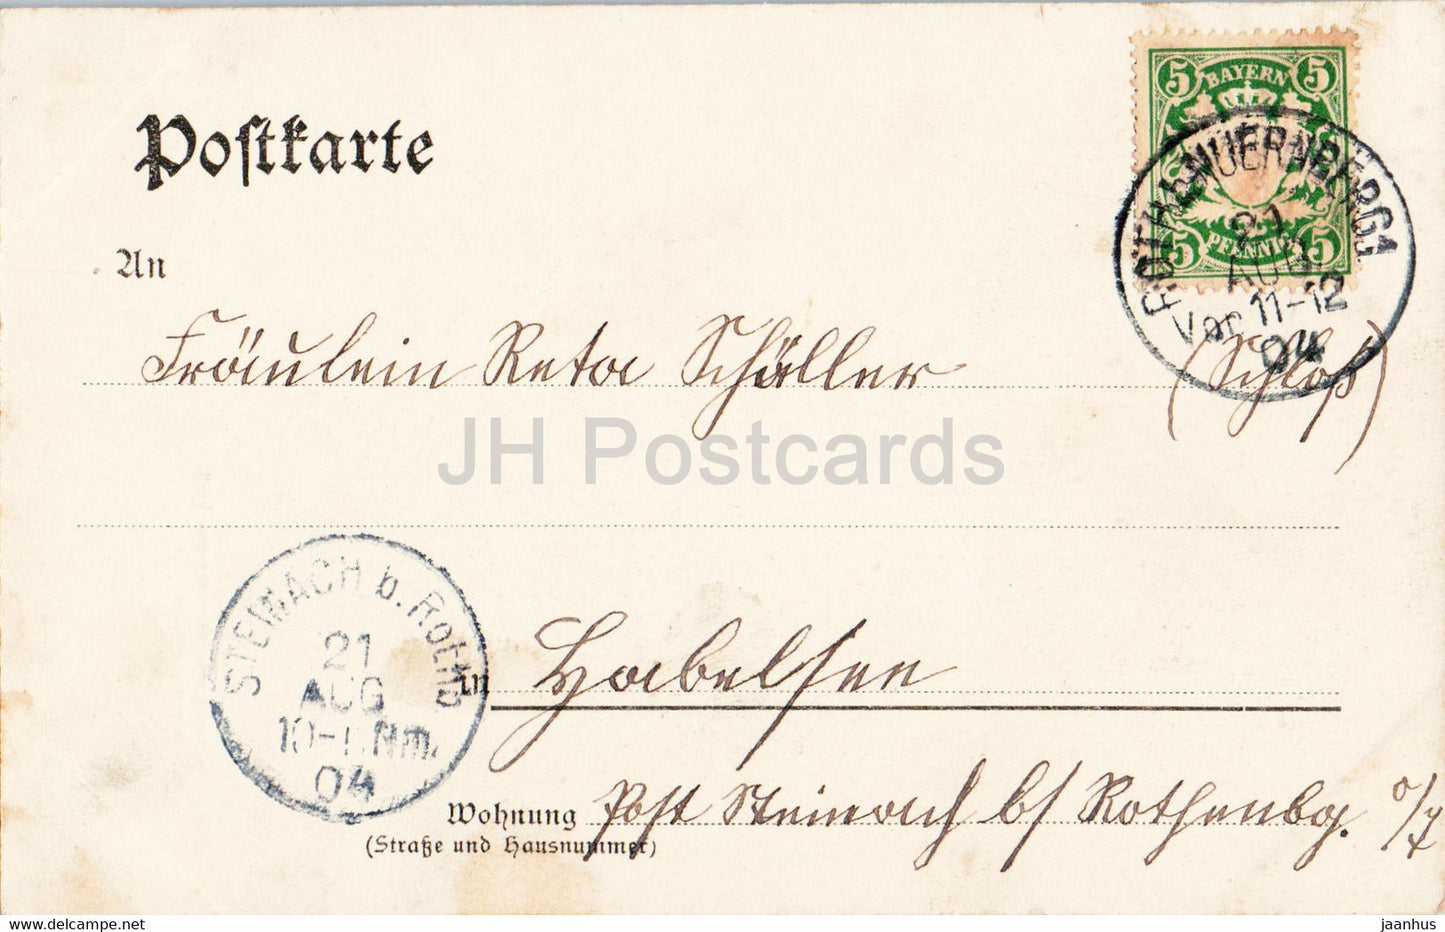 Postkarte
5 BAYERN 5
5 PFENNIG 5
NUERNBERG 1
21
AUG
Vor 11-12
04
An
Fräulein Reta Schäller (Schloß)
JH Postcards
STEINACH b. Rothb
21
AUG
Nm.
04
in Habelsee
Wohnung Post Steinach b/ Rothenbg. o/T
(Straße und Hausnummer)
delcampe.net
jaanhus